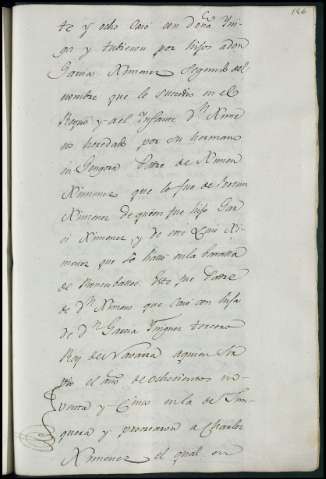 126
te y ocho Casó con doña Yñi-
ga y tubieron por hijos a don
Garcia Ximenez Segundo del
nombre que le sucedio en el
Reyno y a el Ynfante Dn Xime
no heredado por su hermano
in Gongora Padre de Ximen
Ximenez que lo fue de
Ximenez de quien fue hijo Gar
ci Ximenez y de este Xi-
menez que se halló en la batalla
de Roncesballes. Este fue Padre
de Dn Ximeno que Casó con hija
de Dn Garcia Yñiguez tercero
Rey de Navarra a quien
el año de ochocientos no-
venta y Cinco en la de Jun-
quera y procrearon a Charles
Ximenez el qual en